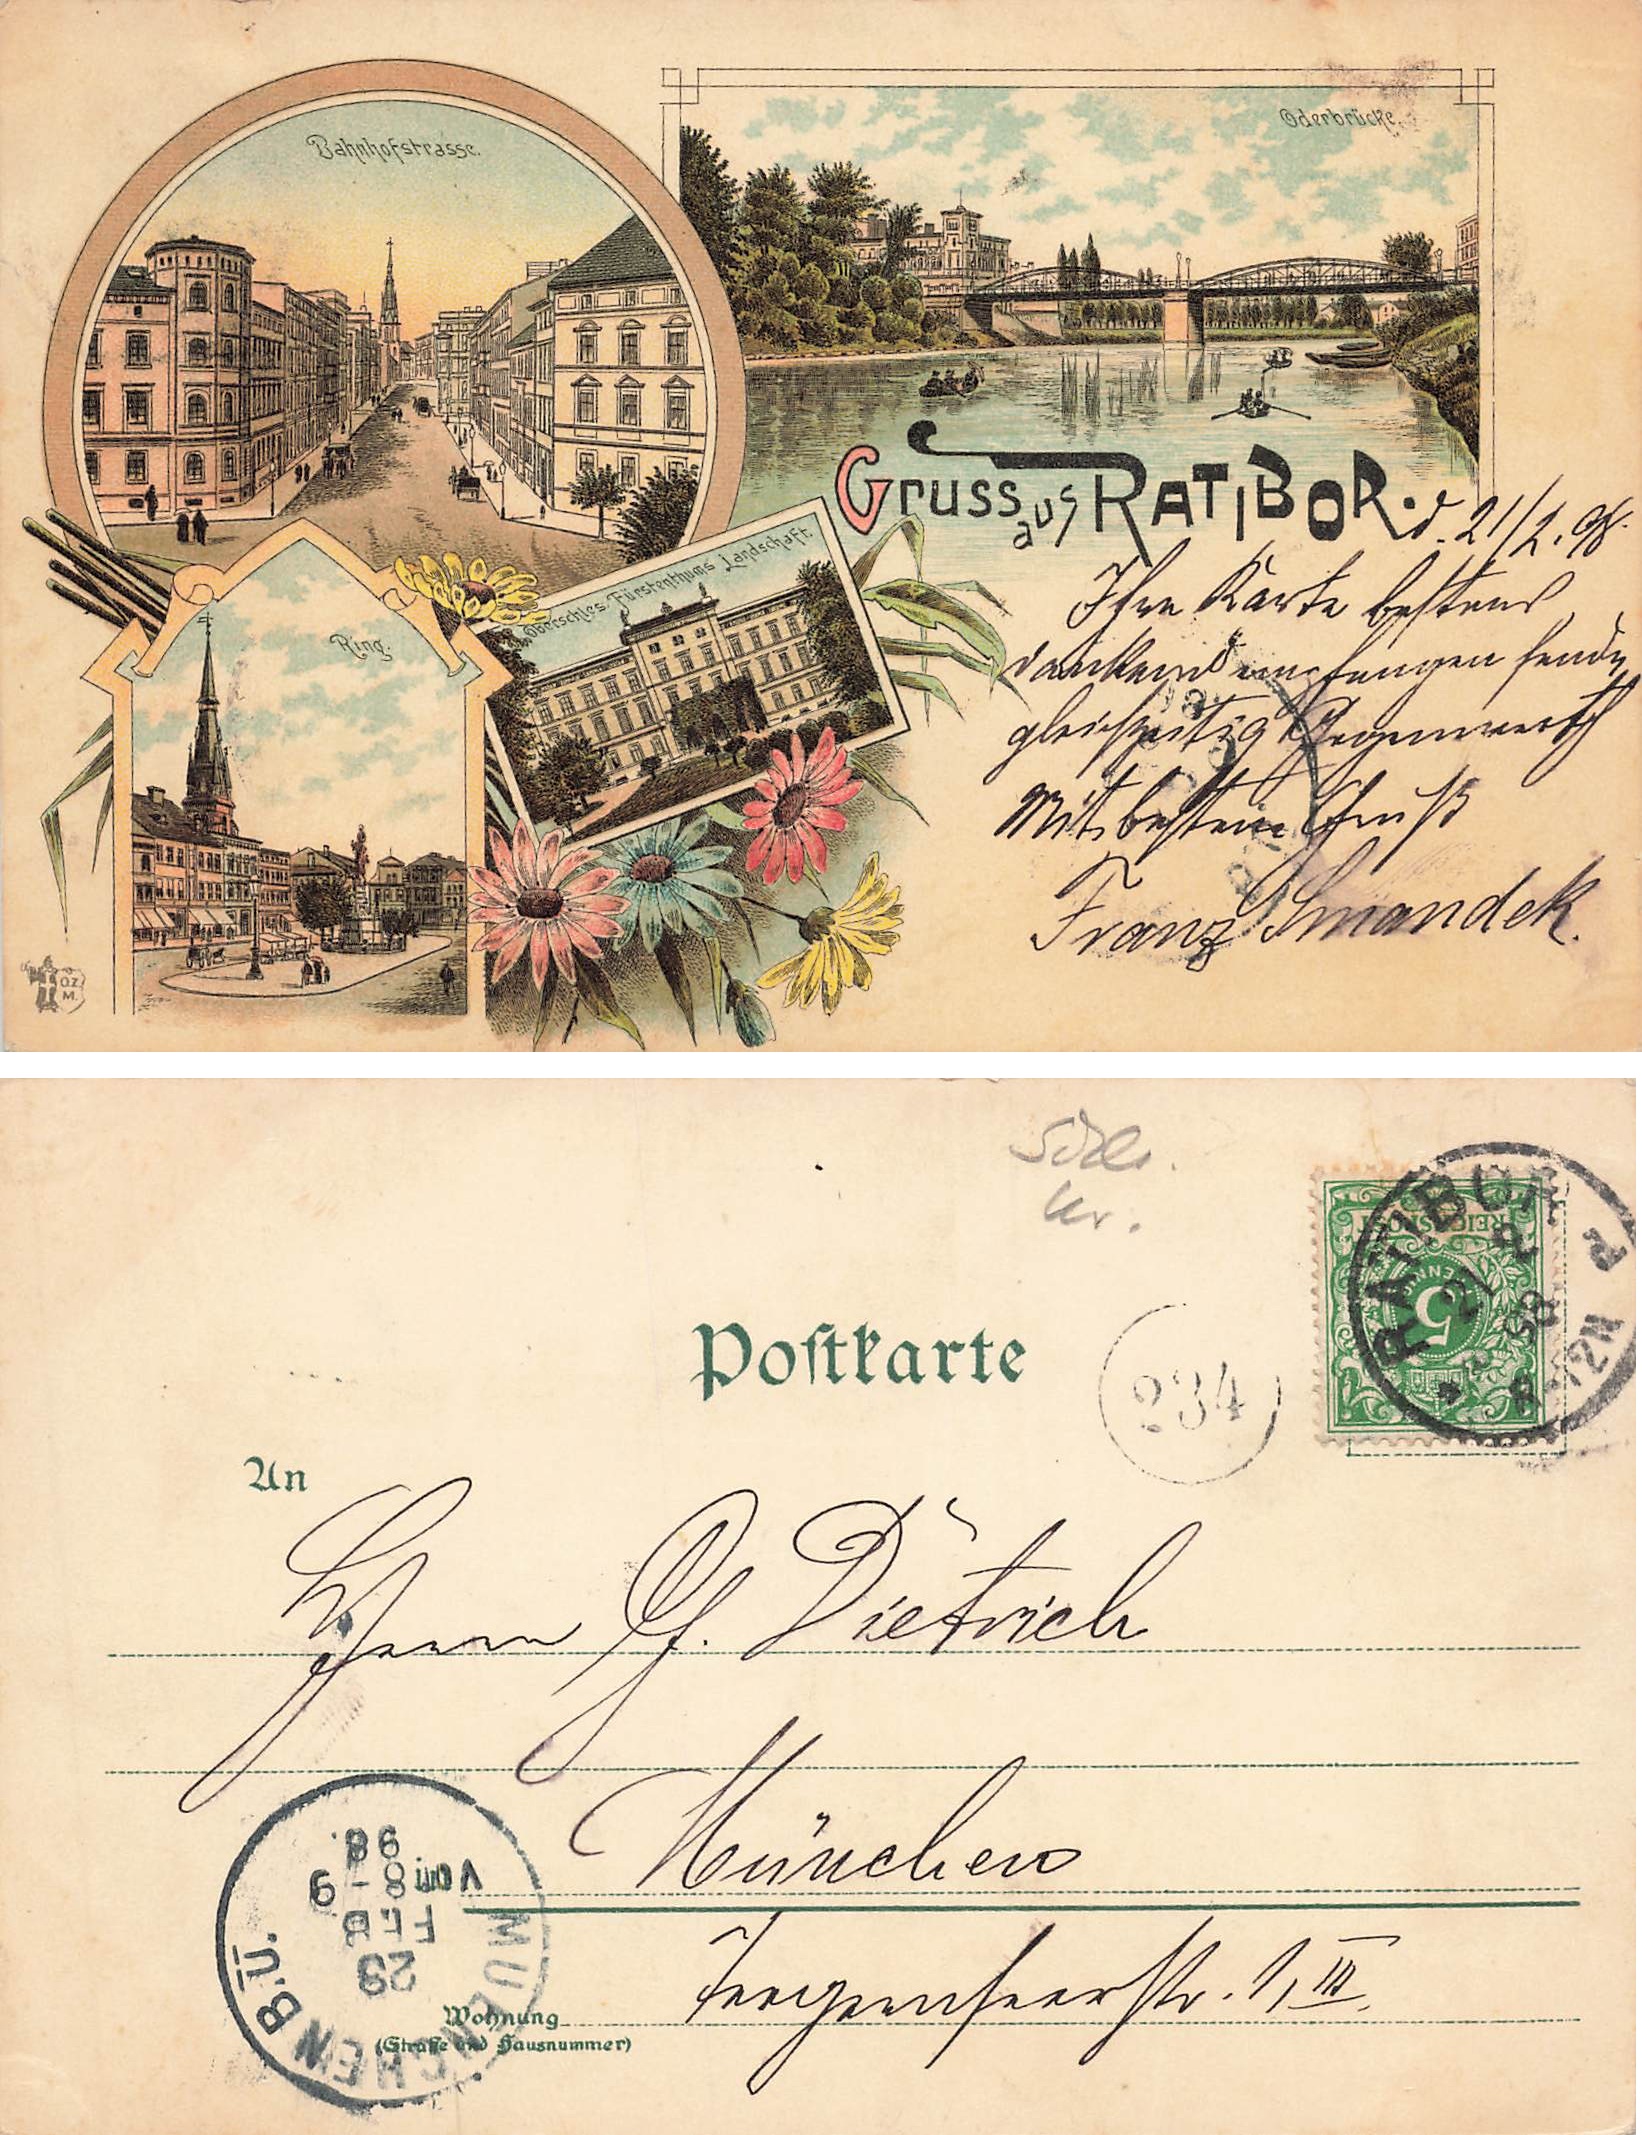 Bahnhofstrasse.
Oderbrücke.
Gruss aus RATIBOR.
d. 21/2.98.
Oberschles. Fürstenthums Landschaft.
Ring.
Ihre Karte bestens
dankend empfangen sende
gleichzeitig Gegenwerth
Mit bestem Gruß
Franz Smandek.
O.Z.
M.
Postkarte
234
REICHSPOST
5
PFENNIG
RATIBOR
21 2
98
8-12N
An
Herrn G. Dietrich
München
Wohnung
(Straße und Hausnummer)
str. 1, III.
MUENCHEN B.Ü.
23
FEB
Vorm 8-9
98.